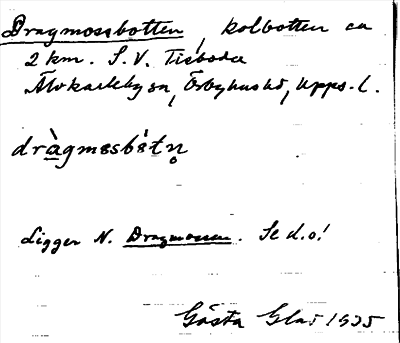 Dragmossbotten, kolbotten ca
2 km. S.V. Tisboda
Älvkarleby sn, Örbyhus hd, Upps. l.
dràgmɜsbɜ́tn̥
Ligger N. Dragmossen. Se d.o!
Gösta Glas 1935